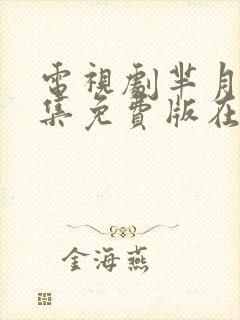 電視劇羋月
集免費版在
金海燕